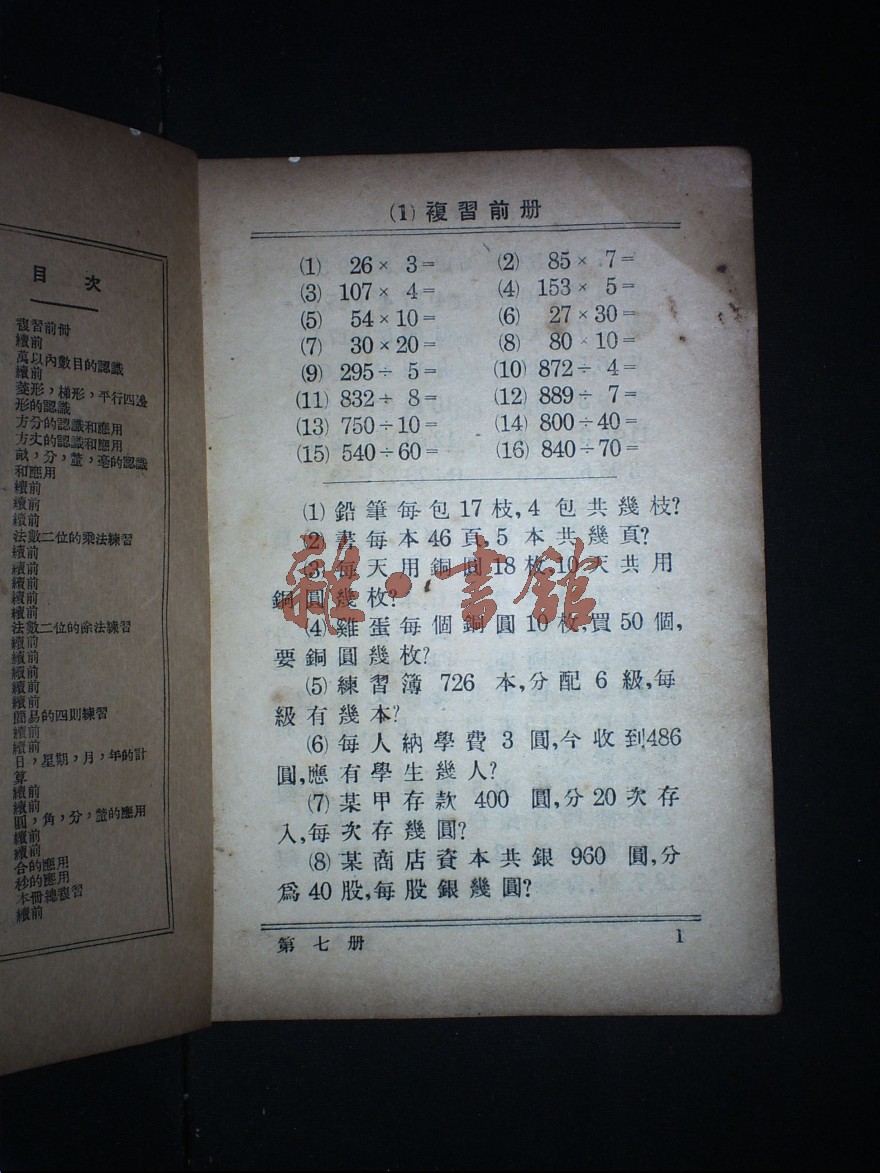 目次
複習前冊
續前
萬以內數目的認識
續前
菱形，梯形，平行四邊
形的認識
方分的認識和應用
方丈的認識和應用
畝，分，釐，毫的認識
和應用
續前
續前
續前
法數二位的乘法練習
續前
續前
續前
續前
續前
法數二位的除法練習
續前
續前
續前
續前
續前
簡易的四則練習
續前
續前
日，星期，月，年的計
算
續前
續前
圓，角，分，釐的應用
續前
續前
合的應用
秒的應用
本冊總複習
續前
(1) 複習前册
(1) 26 × 3 = (2) 85 × 7 =
(3) 107 × 4 = (4) 153 × 5 =
(5) 54 × 10 = (6) 27 × 30 =
(7) 30 × 20 = (8) 80 × 10 =
(9) 295 ÷ 5 = (10) 872 ÷ 4 =
(11) 832 ÷ 8 = (12) 889 ÷ 7 =
(13) 750 ÷ 10 = (14) 800 ÷ 40 =
(15) 540 ÷ 60 = (16) 840 ÷ 70 =
(1) 鉛筆每包17枝,4包共幾枝?
(2) 書每本46頁,5本共幾頁?
(3) 每天用銅圓18枚,10天共用
銅圓幾枚?
(4) 雞蛋每個銅圓10枚,買50個,
要銅圓幾枚?
(5) 練習簿 726 本,分配6級,每
級有幾本?
(6) 每人納學費3圓,今收到486
圓,應有學生幾人?
(7) 某甲存款 400 圓,分20次存
入,每次存幾圓?
(8) 某商店資本共銀 960 圓,分
爲40股,每股銀幾圓?
第七册 1
雜·書館